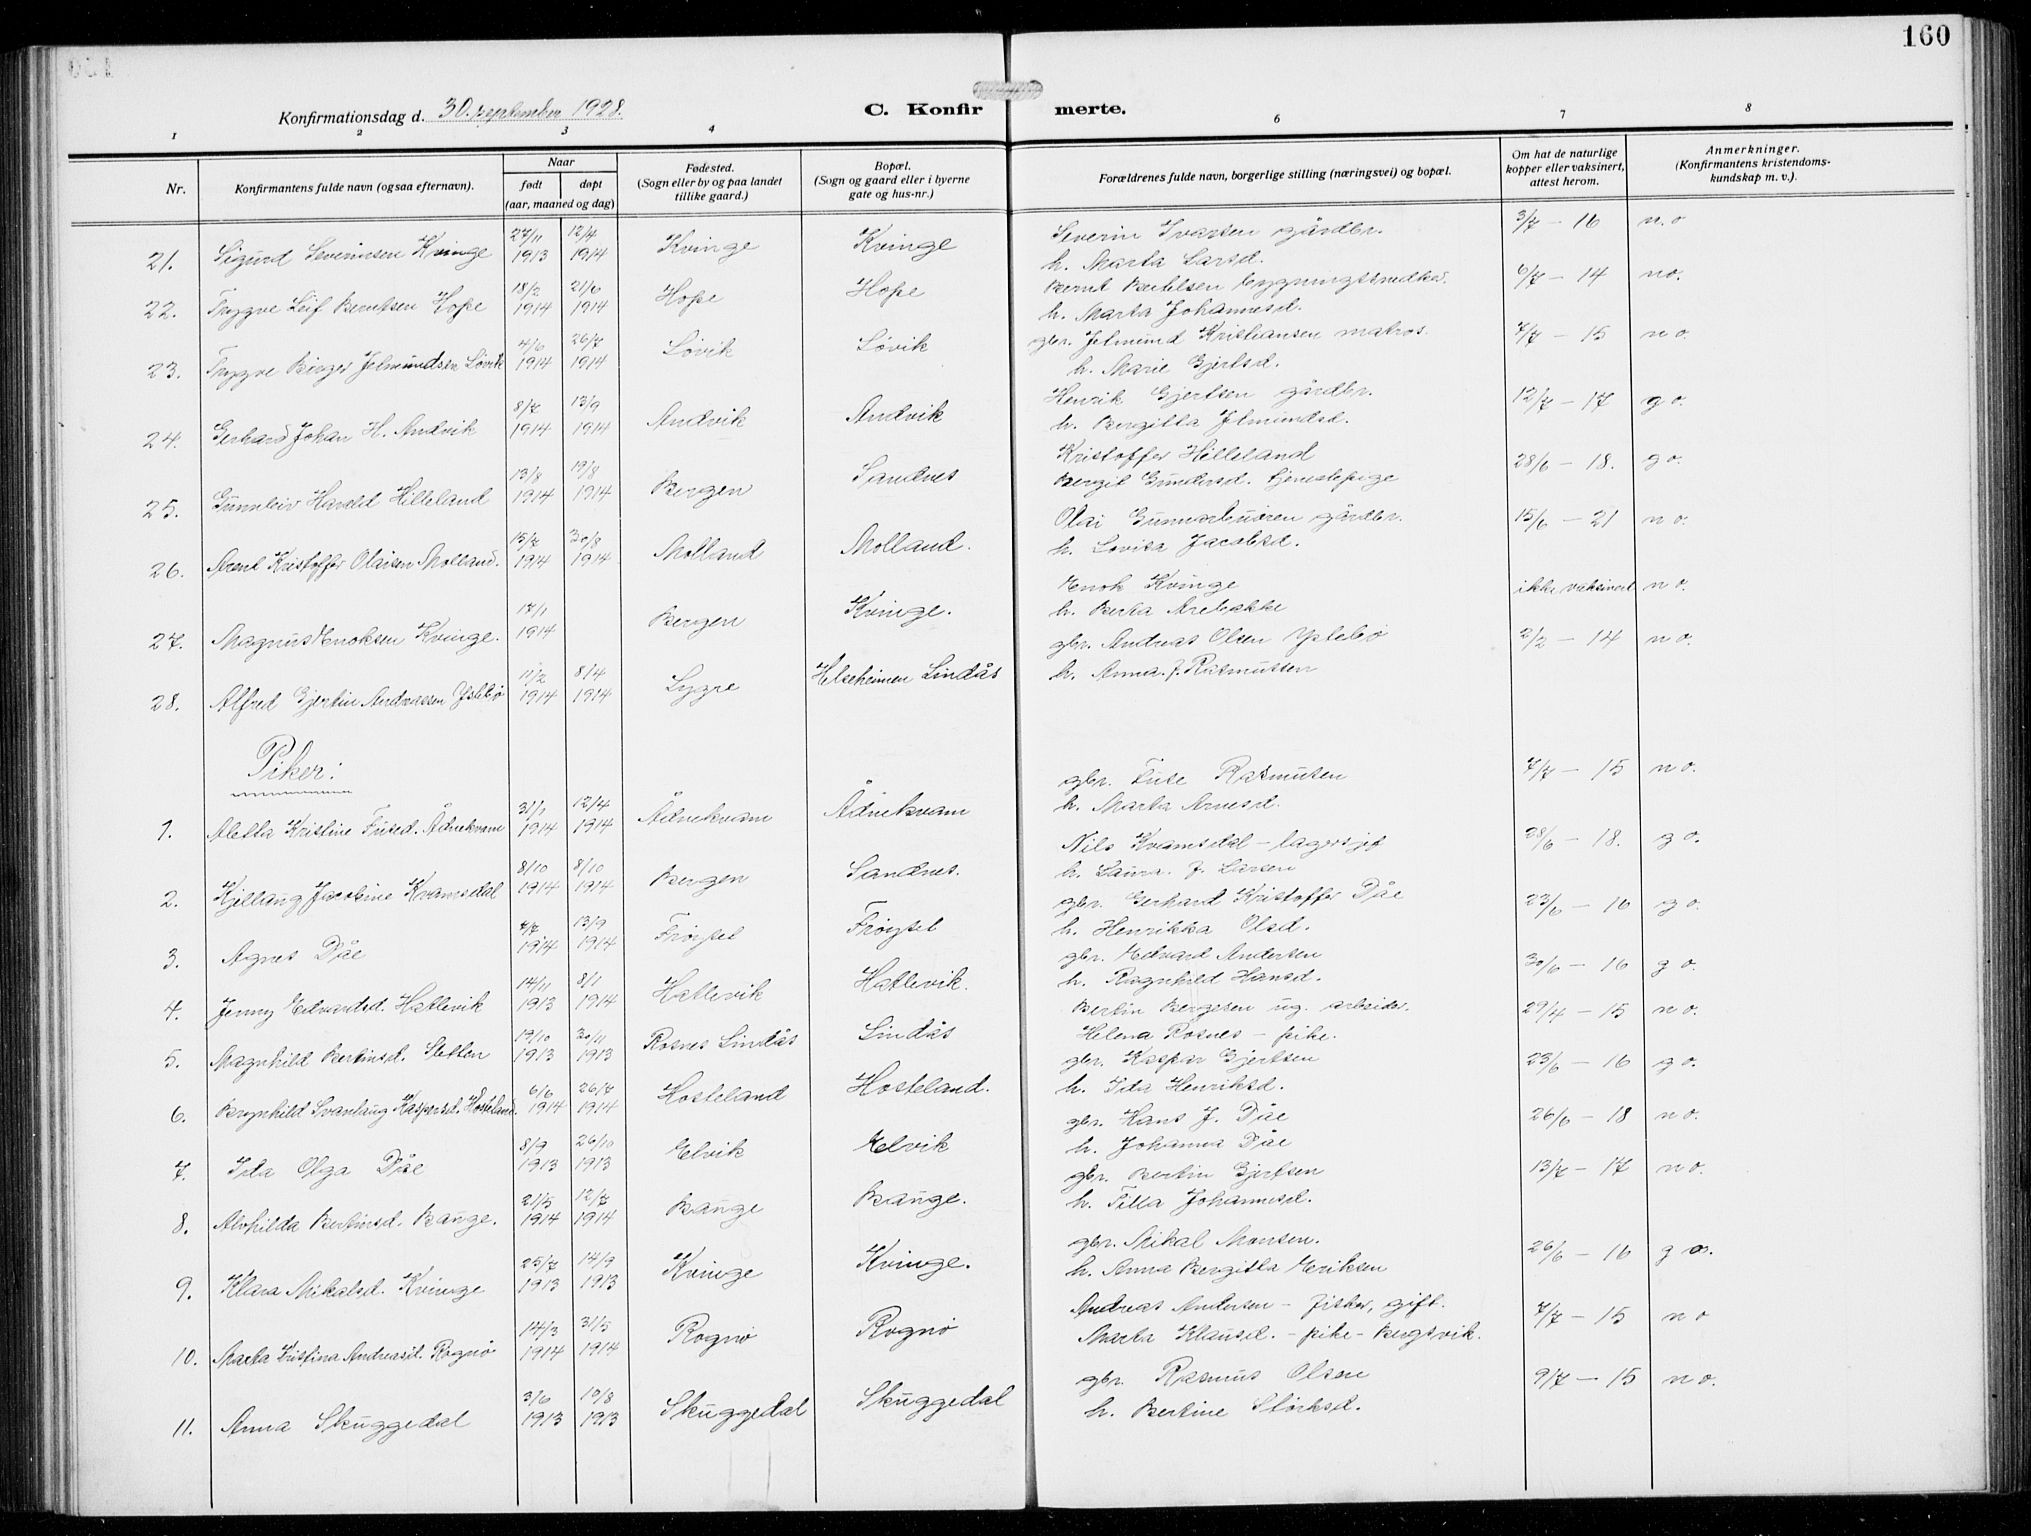 160
Konfirmationsdag d. 30. september 1928.
C. Konfirmerte.
1 2 3 4 6 7 8
Nr.
Konfirmantens fulde navn (og saa efternavn).
Naar
født døpt
(aar, maaned og dag)
Fødested.
(Sogn eller by og paa landet
tillike gaard.)
Bopæl.
(Sogn og gaard eller i byerne
gate og hus-nr.)
Forældrenes fulde navn, borgerlige stilling (næringsvei) og bopæl.
Om hat de naturlige
kopper eller vaksinert,
attest herom.
Anmerkninger.
(Konfirmantens kristendoms-
kundskap m. v.).
21. Sigurd Severinsen Kvinge 27/11 1913 12/4 1914 Kvinge Kvinge Severin Ivarsen gårdbr. 3/7 - 16 n.o
h. Marta Larsd.
22. Trygve Leif Berntsen Hope 18/2 1914 21/6 1914 Hope Hope Bernt Bertilsen bygningssnedker. 6/7 - 14 no.
h. Marta Johannesd.
23. Trygve Birger Jelmundsen Løvik 4/6 1914 26/7 1914 Løvik Løvik gbr. Jelmund Kristiansen matros. 7/7 - 15 no.
h. Marie Gjertsd.
24. Gerhard Johan H. Andvik 8/7 1914 13/9 1914 Andvik Andvik Henrik Gjertsen gårdbr. 12/7 - 17 go.
h. Bergitta Jelmundsd.
25. Gunnleiv Harald Hilleland 13/8 1914 19/8 1914 Bergen Sandnes Kristoffer Hilleland 28/6 - 18. go.
Bergit Gundersd. tjenestepige
26. Arent Kristoffer Olaisen Molland. 15/7 1914 30/8 1914 Molland Molland. Olai gårdbr. 15/6 - 21 no.
h. Lovisa Jacobsd.
27. Magnus Enoksen Kvinge. 17/1 1914 Bergen Kvinge. Enok Kvinge ikke vaksinert no.
h. Berta
28. Alfred Gjertin Andreassen Ystebø 11/2 1914 8/4 1914 Lygre Helseheimen Lindås gbr. Andreas Olsen Ystebø 2/2 - 14 no.
h. Anna J. Rasmussen
Piker:
1. Aletta Kristine Fused. Ådnekvam 31/1 1914 12/4 1914 Ådnekvam Ådnekvam gbr. Fuse Rasmusen 7/7 - 15 no.
h. Marta Arnesd.
2. Kjellaug Jacobine Kvamsdal 8/10 1914 8/10 1914 Bergen Sandnes. Nils Kvamsdal - 28/6 - 18. go.
h. Laura. J. Larsen
3. Agnes Dåe 7/7 1914 13/9 1914 Frøyset Frøyset gbr. Gerhard Kristoffer Dåe 23/6 - 16 go.
h. Henrikka Olsd.
4. Jenny Edvardsd. Hatlevik 14/11 1913 8/1 1914 Hatlevik Hatlevik. gbr. Edvard Andersen 30/6 - 16 go.
h. Ragnhild Hansd.
5. Magnhild Bertinsd. Sletten 19/10 1913 30/11 1913 Rosnes Lindås Lindås Bertin Bergesen ug. arbeider. 29/4 - 15 no.
Helena Rosnes - pike.
6. Bergnhild Svanlaug Kaspersd. Hosteland. 6/6 1914 26/7 1914 Hosteland Hosteland. gbr. Kaspar Gjertsen 23/6 - 16 go.
h. Ida Henriksd.
7. Ida Olga Dåe 8/9 1913 26/10 1913 Elvik Elvik gbr. Hans J. Dåe 26/6 - 18 no.
h. Johanna Dåe
8. Alvhilda Bertinsd. Bauge. 21/5 1914 12/7 1914 Bauge Bauge. gbr. Bertin Gjertsen 13/7 - 17 no.
h. Tilla Johannesd.
9. Klara Mikalsd. Kvinge 25/7 1913 14/9 1913 Kvinge Kvinge. gbr. Mikal Monsen. 26/6 - 16 go.
h. Anna Bergitta Eriksen
10. Marta Kristina Andreasd. Rognø 14/3 1914 31/5 1914 Rognø Rognø Andreas Andersen - fisker, gift. 7/7 - 15 no
Marta Klausd. - pike - Bergsvik.
11. Anna Skuggedal 3/6 1913 10/8 1913 Skuggedal Skuggedal gbr. Rasmus Olsen 9/7 - 15 no.
h. Bertine Störksd.